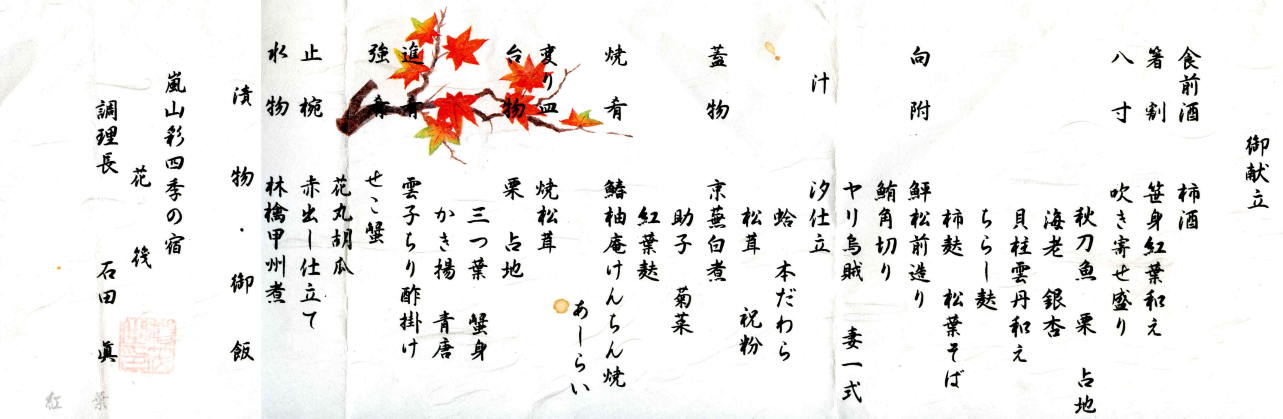 御献立
食前酒 柿酒
箸割 笹身紅葉和え
八寸 吹き寄せ盛り
秋刀魚 栗 占地
海老 銀杏
貝柱雲丹和え
ちらし麩
柿麩 松葉そば
向附 鮃松前造り
鮪角切り
ヤリ烏賊 妻一式
汁 汐仕立
蛤 本だわら
松茸 祝粉
蓋物 京蕪白煮
助子 菊菜
紅葉麩
焼肴 鰆柚庵けんちん焼
あしらい
変り皿 焼松茸
台物 栗 占地
三つ葉 蟹身
かき揚 青唐
進肴 雲子ちり酢掛け
強肴 せこ蟹
花丸胡瓜
止椀 赤出し仕立て
水物 林檎甲州煮
漬物・御飯
嵐山彩四季の宿
花筏
調理長 石田 眞
紅葉